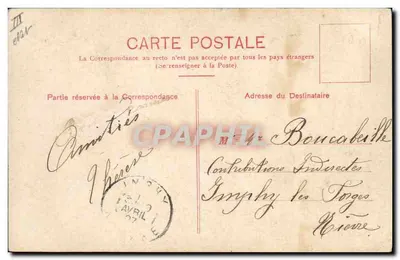 III
CARTE POSTALE
La Correspondance au recto n'est pas acceptée par tous les pays étrangers
(se renseigner à la Poste)
Partie réservée à la Correspondance
Adresse du Destinataire
Amitiés
Thérèse
CPARAMA
Boucabeille
Contributions Indirectes
Imphy les Forges
Nièvre
AVRIL
07